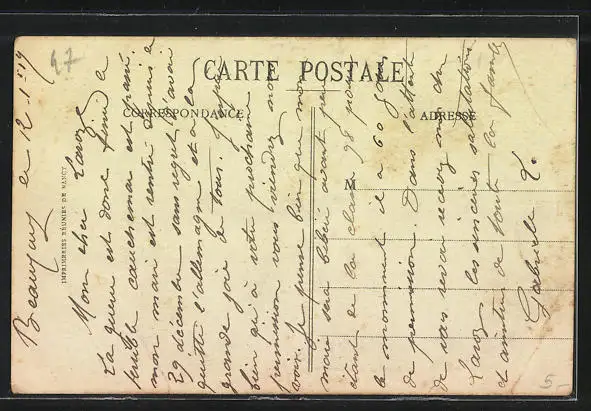 27
CARTE POSTALE
CORRESPONDANCE
ADRESSE
IMPRIMERIES RÉUNIES DE NANCY
le 2.1.19
Mon cher Laroz
La guerre est donc finie le
terrible cauchemar est passé.
mon mari est rentré depuis le
29 décembre sans regret d'avoir
quitté l'allemagne et à la
grande joie de tous. J'espère
bien qu'à votre prochaine
permission vous viendrez nous
voir. Je pense bien que mon
mari sera libéré avant peu
étant de la classe 98 pour
le moment il a 60 jours
de permission. Dans l'attente
de vous revoir recevez mon cher
Laroz les sincères salutations
et amitiés de toute la famille
Gabrielle L.
5.-